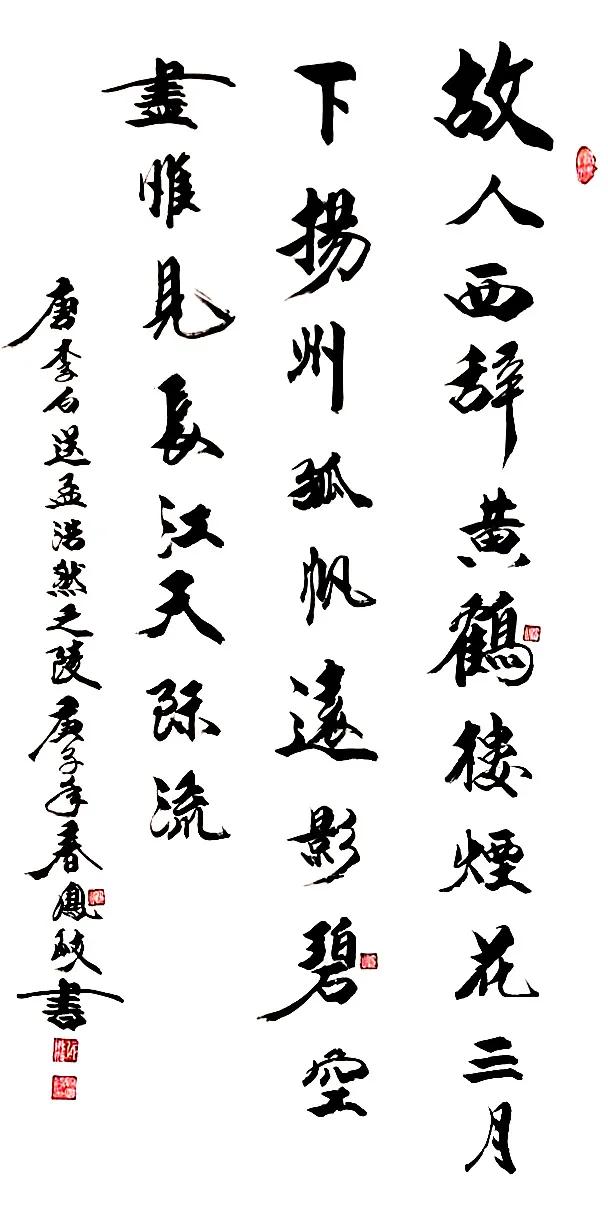 故人西辞黄鶴楼煙花三月
下揚州孤帆遠影碧空
盡惟見長江天际流
唐李白送孟浩然之陵庚子年春鳳岐書